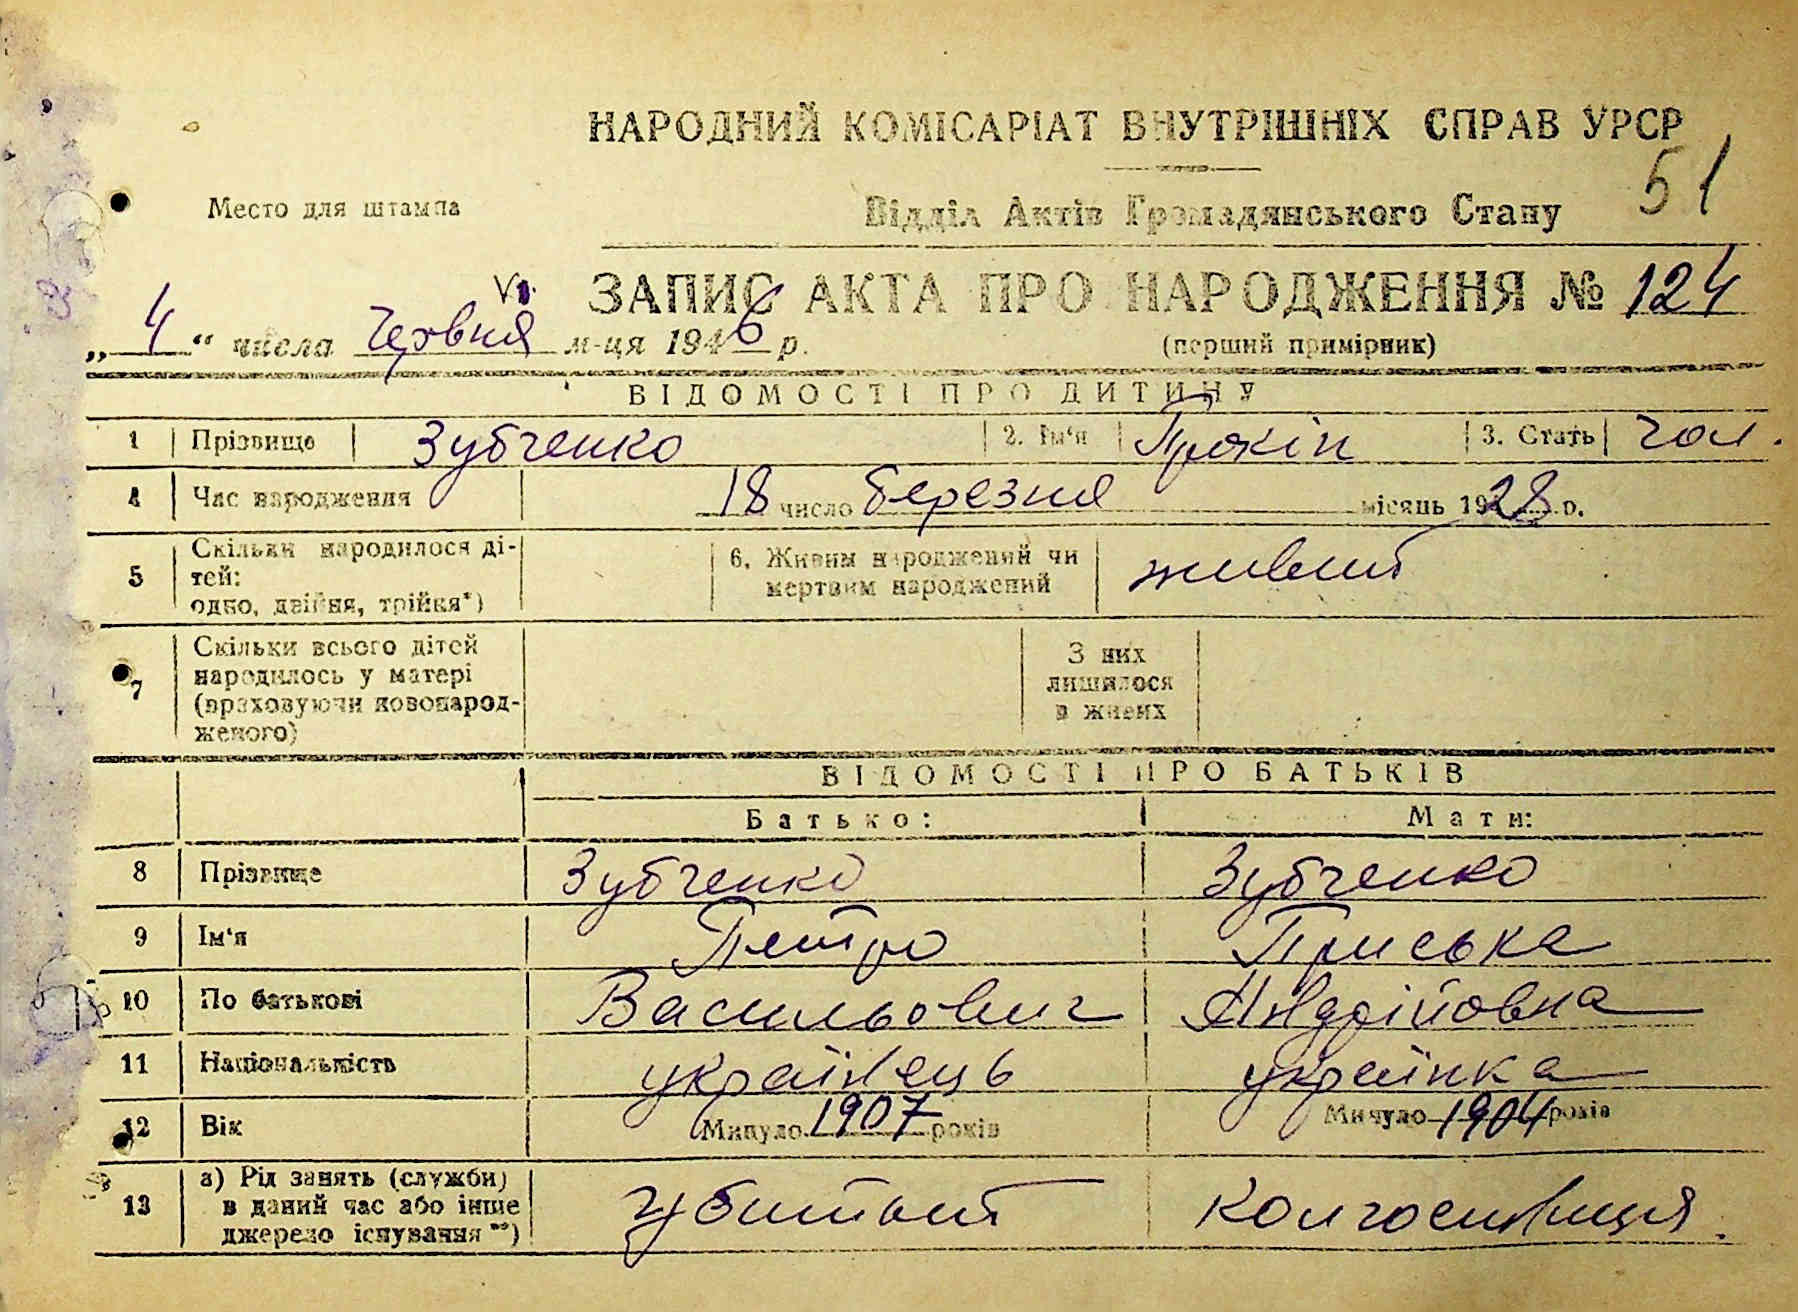 НАРОДНИЙ КОМІСАРІАТ ВНУТРІШНІХ СПРАВ УРСР
51
Место для штампа
Відділ Актів Громадянського Стану
VI
ЗАПИС АКТА ПРО НАРОДЖЕННЯ № 124
„ 4 “ числа Червня м-ця 1946 р.
(перший примірник)
ВІДОМОСТІ ПРО ДИТИНУ
1 Прізвище Зубченко 2. Ім'я Прокіп 3. Стать чол.
4 Час народження 18 число березня місяць 1928 р.
5 Скільки народилося ді-
тей:
одно, двійня, трійня*)
6. Живим народжений чи
мертвим народжений
живит
7 Скільки всього дітей
народилось у матері
(враховуючи новонарод-
женого)
З них
лишилося
в живих
ВІДОМОСТІ ПРО БАТЬКІВ
Батько: Мати:
8 Прізвище Зубченко Зубченко
9 Ім'я Петро Приська
10 По батькові Васильович Андрійовна
11 Національність українець українка
12 Вік Минуло 1907 років Минуло 1904 років
13 а) Рід занять (служби)
в даний час або інше
джерело існування **)
убитит колгоспниця.